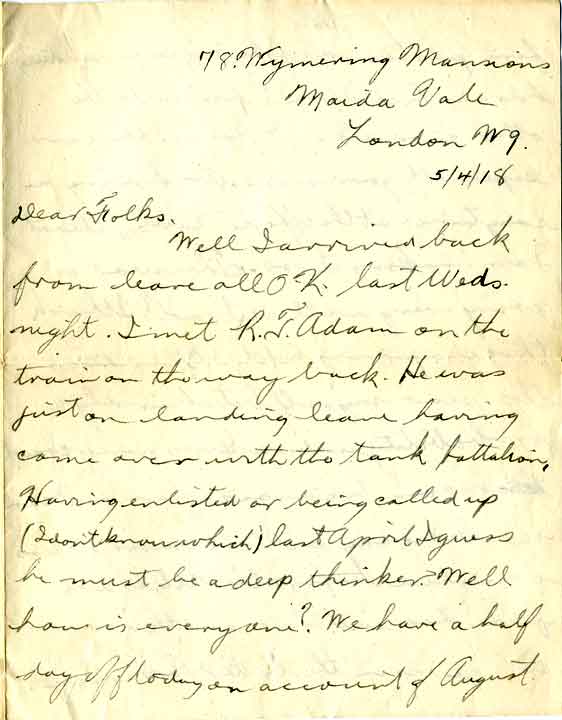 78. Wymering Mansions
Maida Vale
London W9.
5/4/18
Dear Folks.
Well I arrived back
from leave all O.K. last Weds.
night. I met R.T. Adam on the
train on the way back. He was
just on landing leave having
come over with the tank battalion,
Having enlisted or being called up
(I dont know which) last April I guess
he must be a deep thinker. Well
how is everyone? We have a half
day off today on account of August